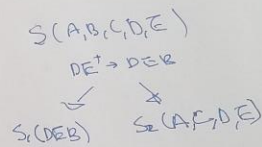 S(A,B,C,D,E)
DE⁺ → DEB
S₁(DEB) S₂(A,C,D,E)